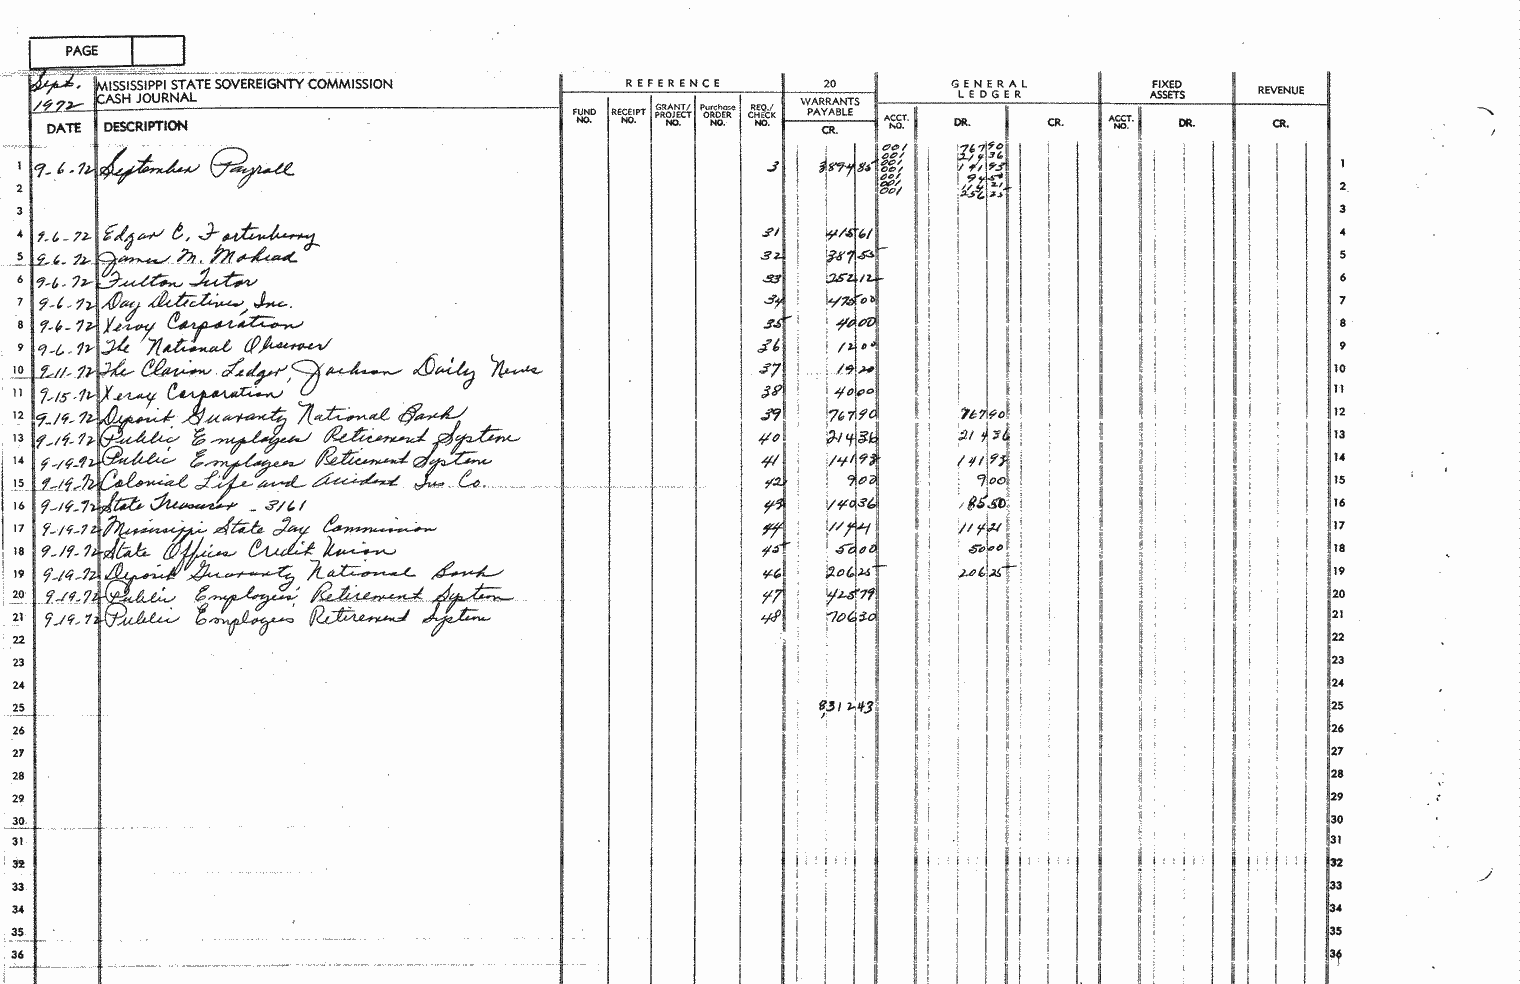 PAGE
Sept. 1972 MISSISSIPPI STATE SOVEREIGNTY COMMISSION CASH JOURNAL
REFERENCE 20 GENERAL LEDGER FIXED ASSETS REVENUE
DATE DESCRIPTION FUND NO. RECEIPT NO. GRANT/ PROJECT NO. Purchase ORDER NO. REQ./ CHECK NO. WARRANTS PAYABLE CR. ACCT. NO. DR. CR. ACCT. NO. DR. CR.
001 76790
001 21436
1 9-6-72 September Payroll 3 389485 001 14193 1
001 9450
2 001 11421 2
001 25625
3 3
4 9-6-72 Edgar C. Fortenberry 31 41561 4
5 9-6-72 James M. Mohead 32 38755 5
6 9-6-72 Fulton Tutor 33 25212 6
7 9-6-72 Day Detectives, Inc. 34 47500 7
8 9-6-72 Xerox Corporation 35 4000 8
9 9-6-72 The National Observer 36 1200 9
10 9-11-72 The Clarion Ledger, Jackson Daily News 37 1920 10
11 9-15-72 Xerox Corporation 38 4000 11
12 9-19-72 Deposit Guaranty National Bank 39 76790 76790 12
13 9-19-72 Public Employees Retirement System 40 21436 21436 13
14 9-19-72 Public Employees Retirement System 41 14193 14193 14
15 9-19-72 Colonial Life and Accident Ins. Co. 42 900 900 15
16 9-19-72 State Treasurer - 3161 43 14036 8550 16
17 9-19-72 Mississippi State Tax Commission 44 11421 11421 17
18 9-19-72 State Offices Credit Union 45 5000 5000 18
19 9-19-72 Deposit Guaranty National Bank 46 20625 20625 19
20 9-19-72 Public Employees' Retirement System 47 42579 20
21 9-19-72 Public Employees Retirement System 48 70630 21
22 22
23 23
24 24
25 8,31243 25
26 26
27 27
28 28
29 29
30 30
31 31
32 32
33 33
34 34
35 35
36 36